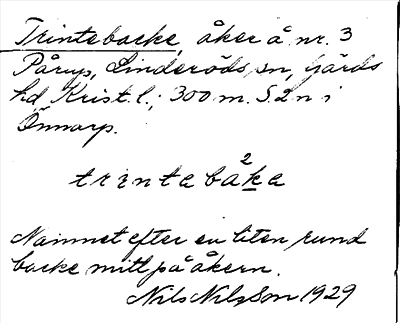 Trintebacke, åker å nr. 3
Pårup, Linderöds sn, Gärds
hd, Krist. l.; 300 m. S. 2 n i
Önnarp.
trinta bå²ka
Namnet efter en liten rund
backe mitt på åkern.
Nils Nilsson 1929